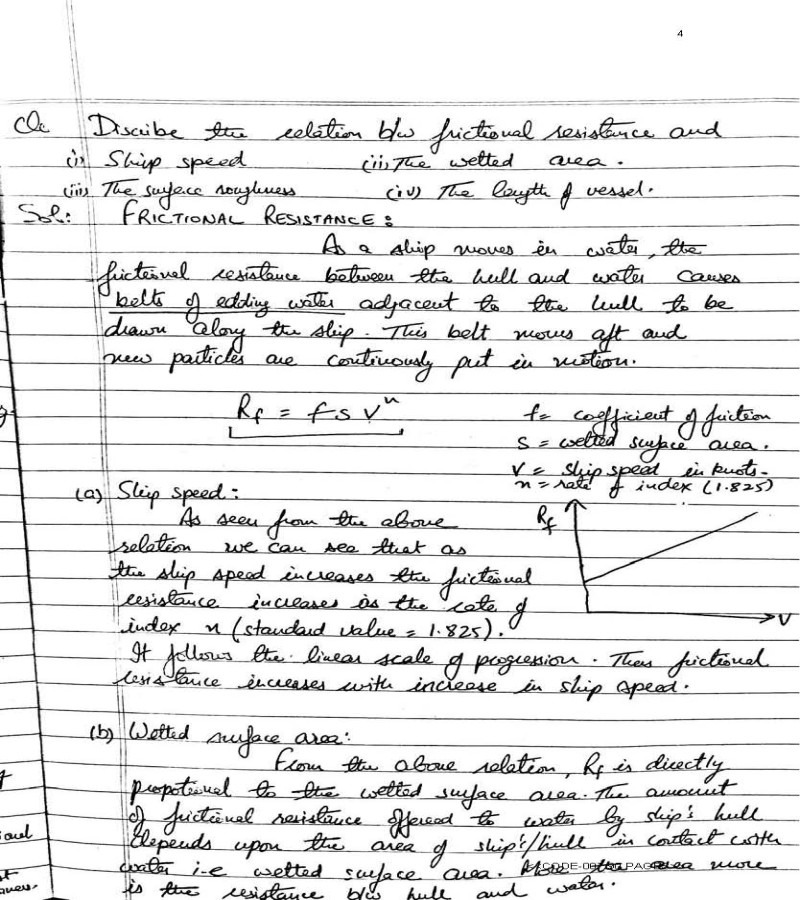 4
Q. Discribe the relation b/w frictional resistance and
(i) Ship speed (ii) The wetted area.
(iii) The surface roughness (iv) The length of vessel.
Sol: FRICTIONAL RESISTANCE:
As a ship moves in water, the
frictional resistance between the hull and water causes
belts of edding water adjacent to the hull to be
drawn along the ship. This belt moves aft and
new particles are continuously put in motion.
Rf = f s v^n
f = coefficient of friction
s = wetted surface area.
v = ship speed in knots.
n = rate of index (1.825)
(a) Ship speed:
As seen from the above
relation we can see that as
the ship speed increases the frictional
resistance increases as the rate of
index n (standard value = 1.825).
Rf
V
It follows the linear scale of progression. Then frictional
resistance increases with increase in ship speed.
(b) Wetted surface area:
From the above relation, Rf is directly
propotional to the wetted surface area. The amount
of frictional resistance offered to water by ship's hull
depends upon the area of ship's/hull in contact with
water i.e wetted surface area. More the area more
is the resistance b/w hull and water.